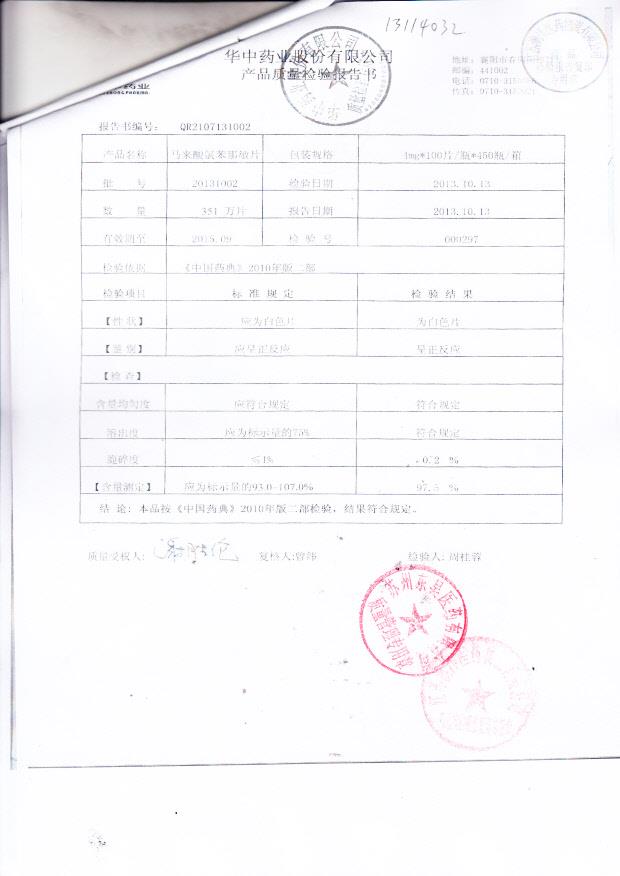 13114032
华中药业股份有限公司
产品质量检验报告书
药业
地址：襄阳市春
邮编：441002
电话：0710-31
传真：0710-31
报告书编号： QR2107131002
产品名称 马来酸氯苯那敏片 包装规格 4mg*100片/瓶*450瓶/箱
批 号 20131002 检验日期 2013.10.13
数 量 351 万片 报告日期 2013.10.13
有效期至 2015.09 检 验 号 000297
检验依据 《中国药典》2010年版二部
检验项目 标 准 规 定 检 验 结 果
【性 状】 应为白色片 为白色片
【鉴 别】 应呈正反应 呈正反应
【检 查】
含量均匀度 应符合规定 符合规定
溶出度 应为标示量的75% 符合规定
脆碎度 ≤1% 0.2 %
【含量测定】 应为标示量的93.0-107.0% 97.5 %
结 论：本品按《中国药典》2010年版二部检验，结果符合规定。
质量受权人： 复核人： 检验人：周桂蓉
苏州东吴医药有限公司
质量管理专用章